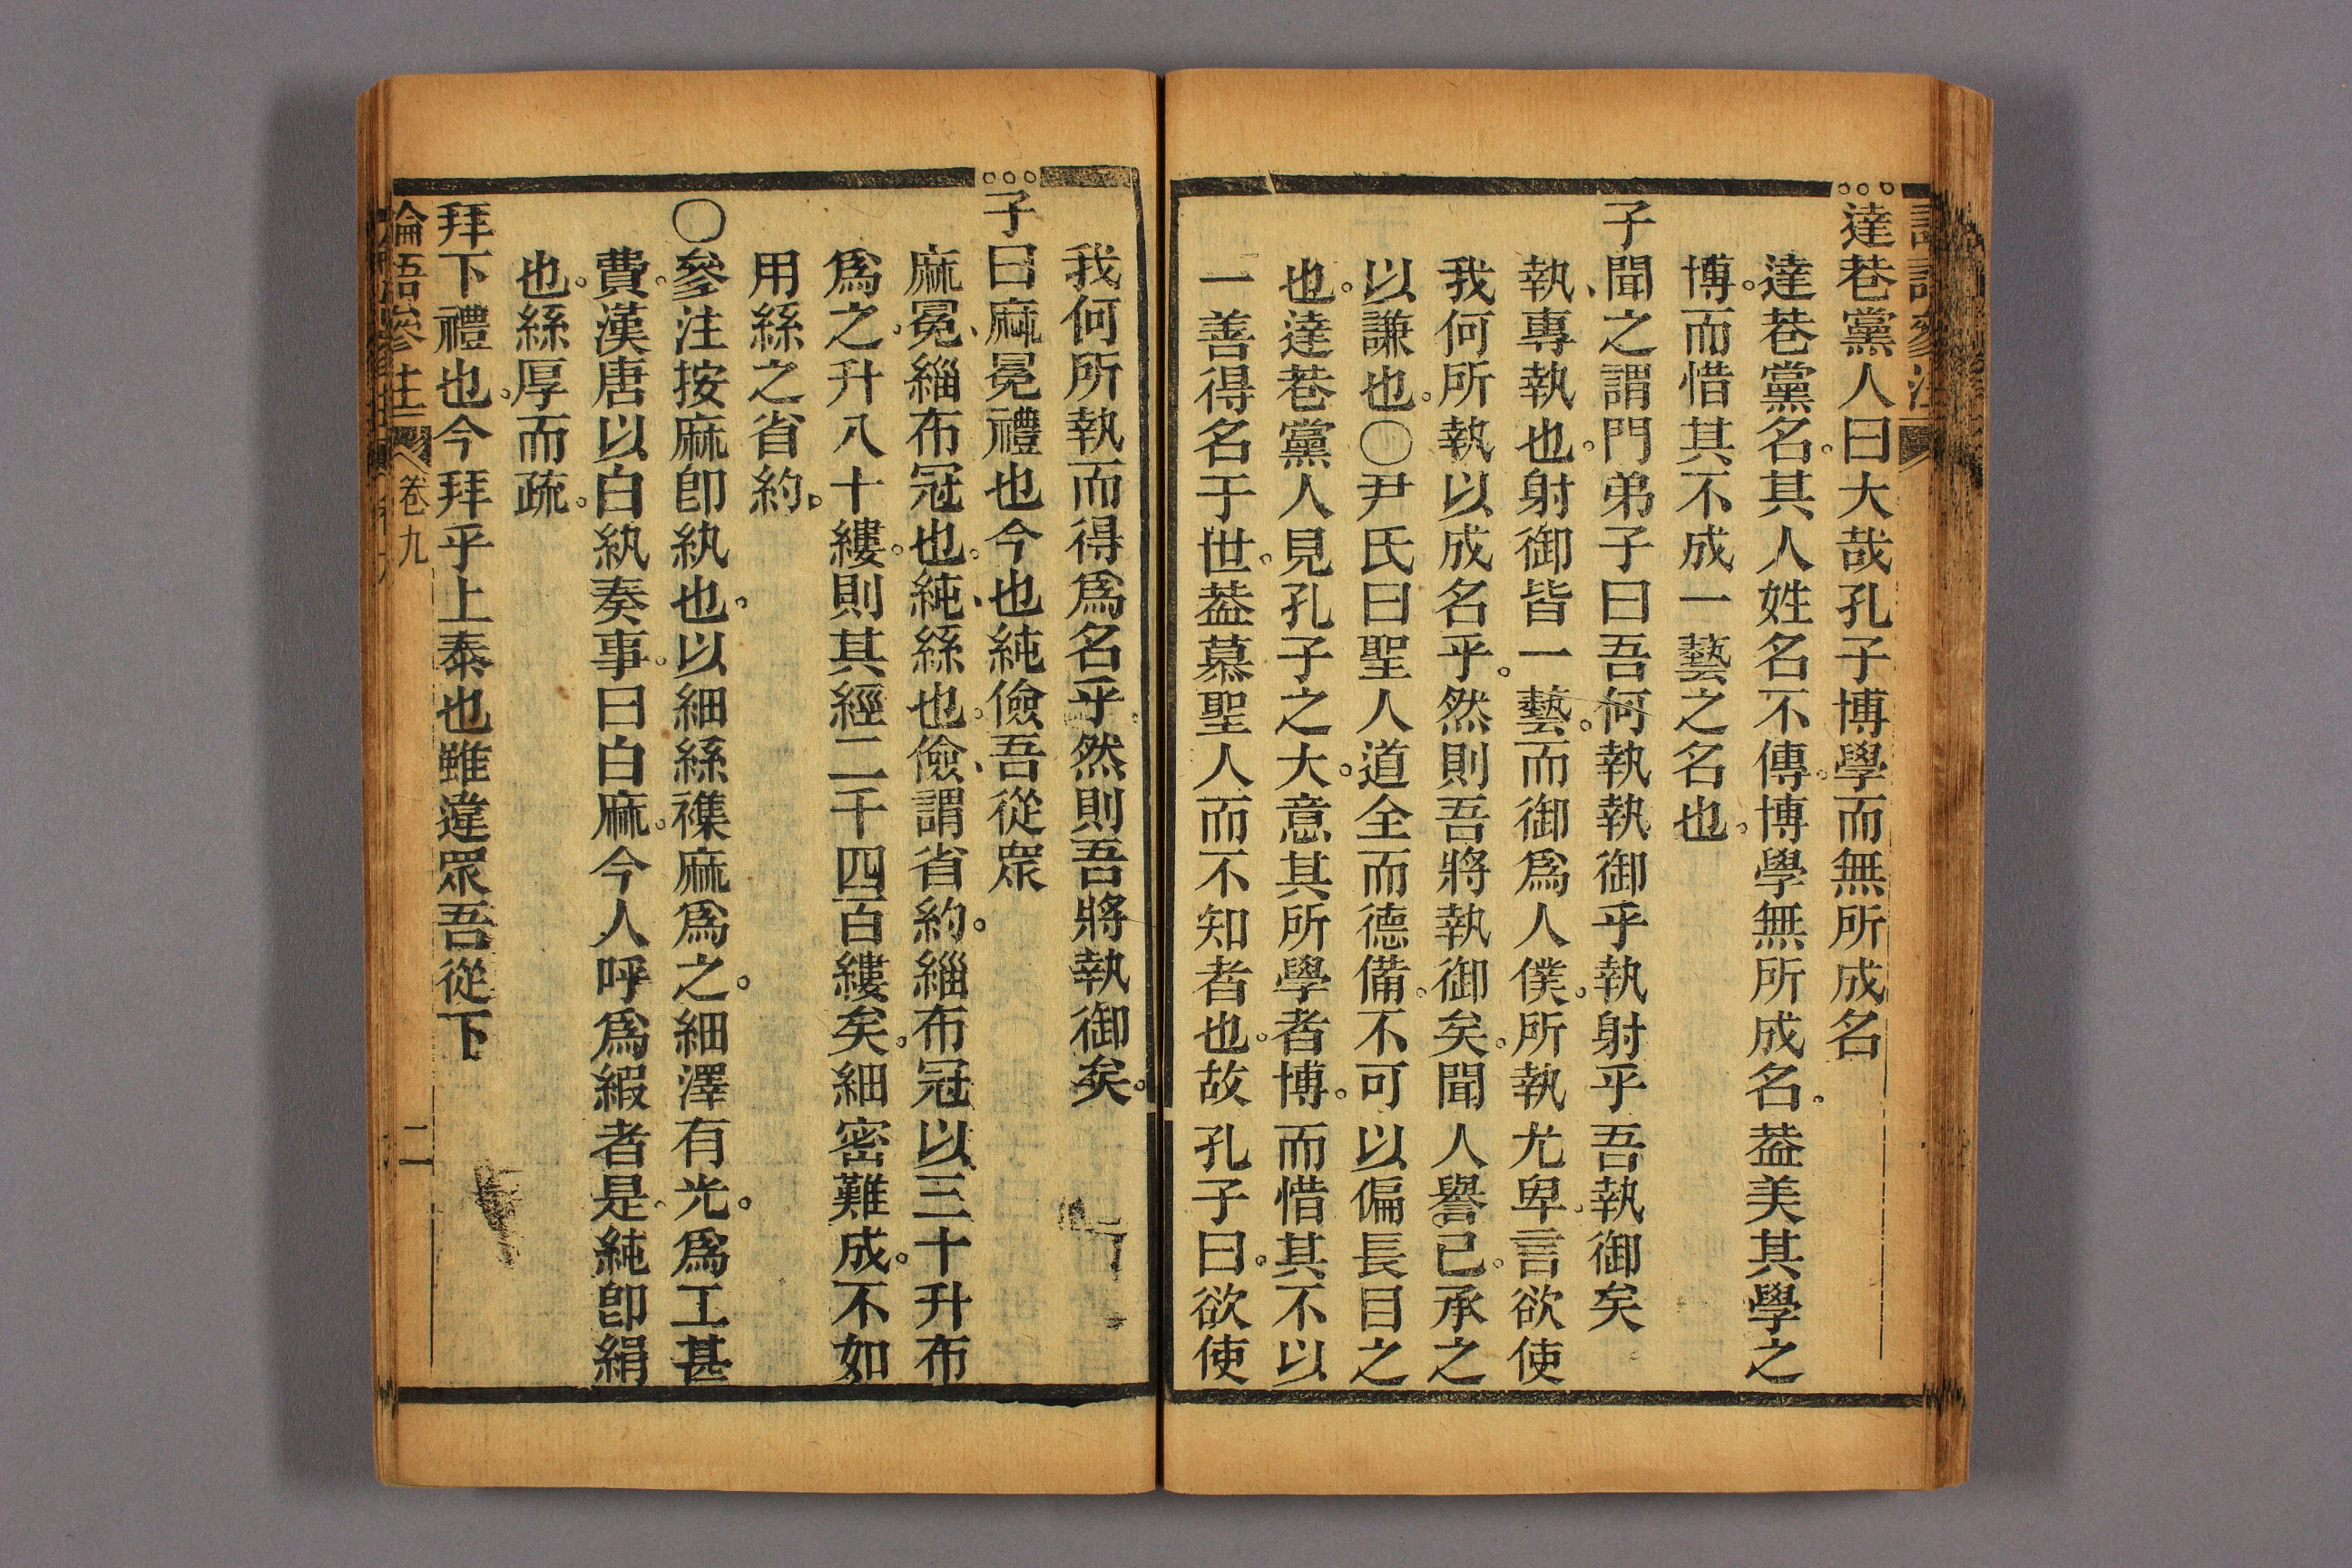 達巷黨人曰大哉孔子博學而無所成名
達巷黨名。其人姓名不傳。博學無所成名。葢美其學之
博。而惜其不成一藝之名也。
子聞之謂門弟子曰吾何執執御乎執射乎吾執御矣
執、專執也。射御皆一藝。而御爲人僕。所執尤卑。言欲使
我何所執以成名乎。然則吾將執御矣。聞人譽己。承之
以謙也。〇尹氏曰聖人道全而德備。不可以偏長目之
也。達巷黨人見孔子之大。意其所學者博。而惜其不以
一善得名于世。葢慕聖人而不知者也。故孔子曰。欲使
我何所執而得爲名乎。然則吾將執御矣。
子曰麻冕禮也今也純儉吾從眾
麻冕、緇布冠也。純、絲也。儉、謂省約。緇布冠以三十升布
爲之。升八十縷。則其經二千四百縷矣。細密難成。不如
用絲之省約。
〇參注按麻卽紈也。以細絲襍麻爲之。細澤有光。爲工甚
費。漢唐以白紈奏事。曰白麻。今人呼爲緞者是。純卽絹
也。絲厚而疏。
拜下禮也。今拜乎上泰也雖違眾吾從下
論語參注 卷九 二